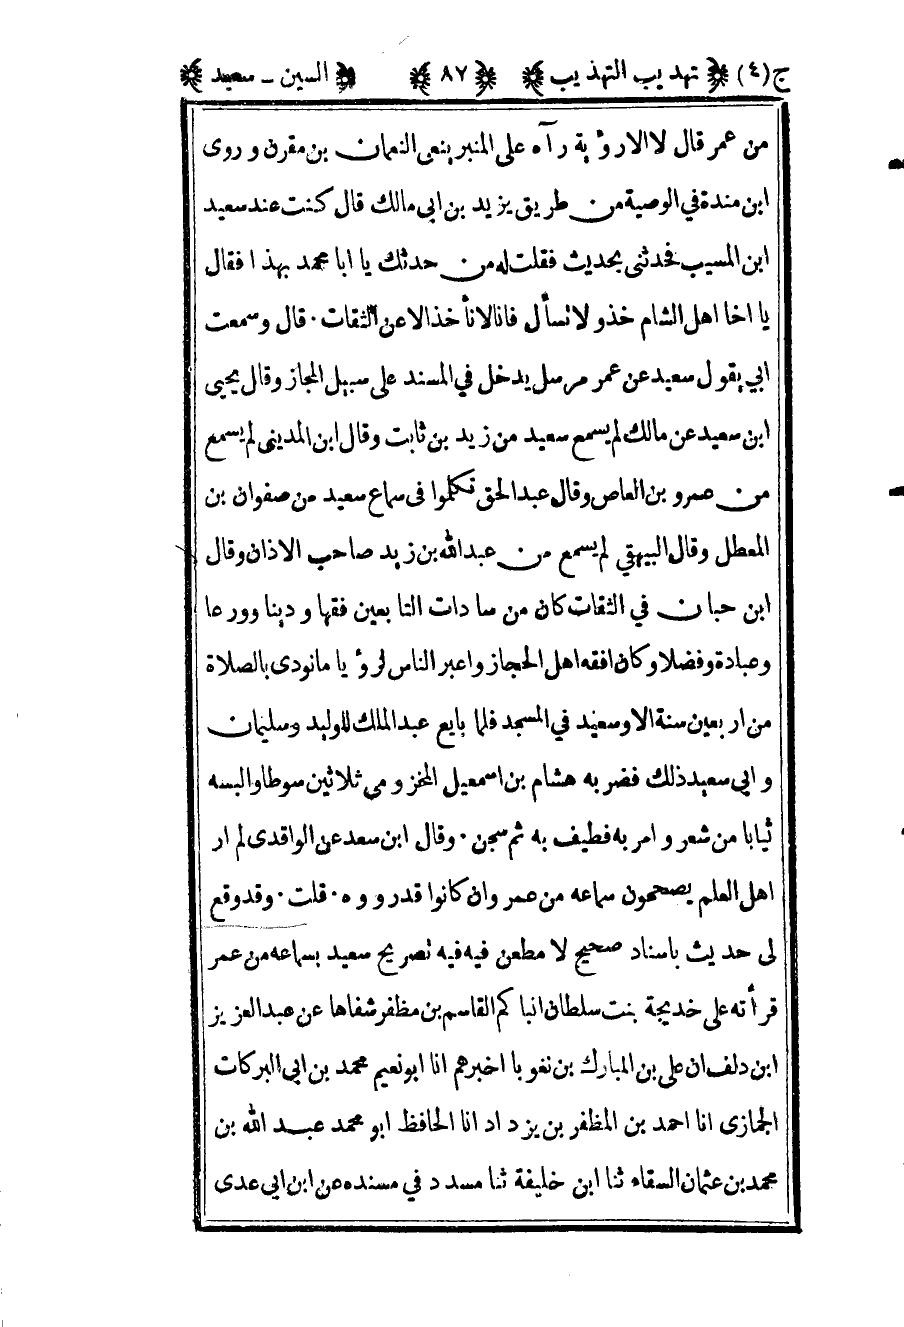 ج(٤) تهذيب التهذيب ٨٧ السين ـ سعيد
من عمر قال لا الا رؤية رآه على المنبر ينعى النعمان بن مقرن و روى
ابن مندة في الوصية من طريق يزيد بن ابى مالك قال كنت عند سعيد
ابن المسيب فحدثنى بحديث فقلت له من حدثك يا ابا محمد بهذا فقال
يا اخا اهل الشام خذ و لا تسأل فانا لا نأخذ الا عن الثقات ٠ قال وسمعت
ابي يقول سعيد عن عمر مرسل يدخل في المسند على سبيل المجاز وقال يحيى
ابن سعيد عن مالك لم يسمع سعيد من زيد بن ثابت وقال ابن المدينى لم يسمع
من عمرو بن العاص وقال عبد الحق تكلموا فى سماع سعيد من صفوان بن
المعطل وقال البيهقي لم يسمع من عبد الله بن زيد صاحب الاذان وقال
ابن حبان في الثقات كان من سادات التابعين فقها و دينا وورعا
وعبادة وفضلا وكان افقه اهل الحجاز واعبر الناس لرؤيا ما نودى بالصلاة
من اربعين سنة الا وسعيد في المسجد فلما بايع عبد الملك للوليد وسليمان
و ابى سعيد ذلك فضربه هشام بن اسمعيل المخزومي ثلاثين سوطا والبسه
ثيابا من شعر و امر به فطيف به ثم سجن ٠ وقال ابن سعد عن الواقدى لم ار
اهل العلم يصححون سماعه من عمر وان كانوا قد رووه ٠ قلت ٠ وقد وقع
لى حديث باسناد صحيح لا مطعن فيه فيه تصريح سعيد بسماعه من عمر
قرأته على خديجة بنت سلطان انبا كم القاسم بن مظفر شفاها عن عبد العزيز
ابن دلف ان على بن المبارك بن نغوبا اخبرهم انا ابو نعيم محمد بن ابى البركات
الجمازى انا احمد بن المظفر بن يزداد انا الحافظ ابو محمد عبد الله بن
محمد بن عثمان السقاء ثنا ابن خليفة ثنا مسدد في مسنده عن ابن ابى عدى